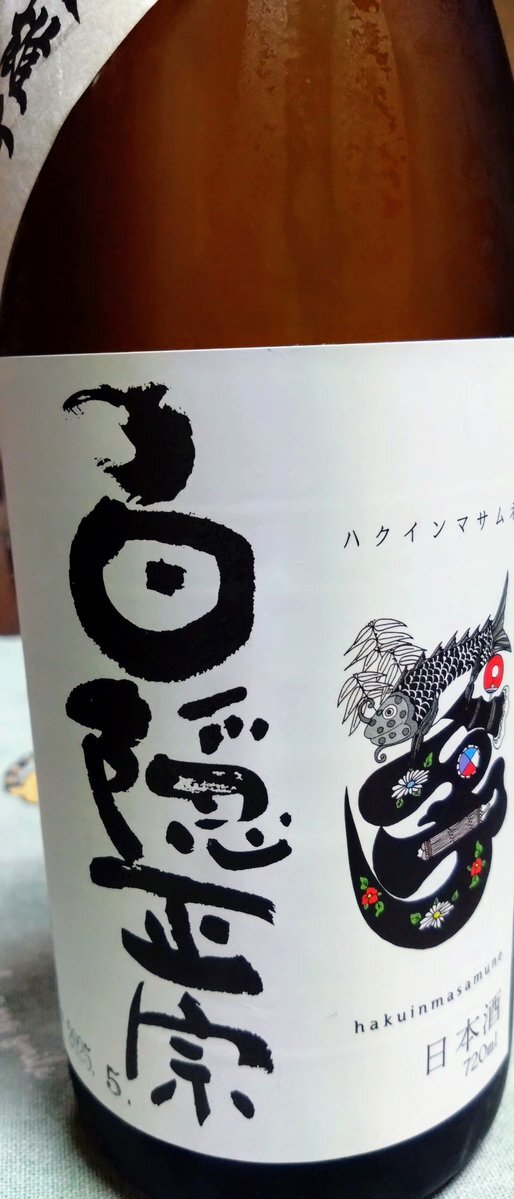 白隠正宗
ハクインマサム
hakuinmasamune
日本酒
720ml
2025. 5.